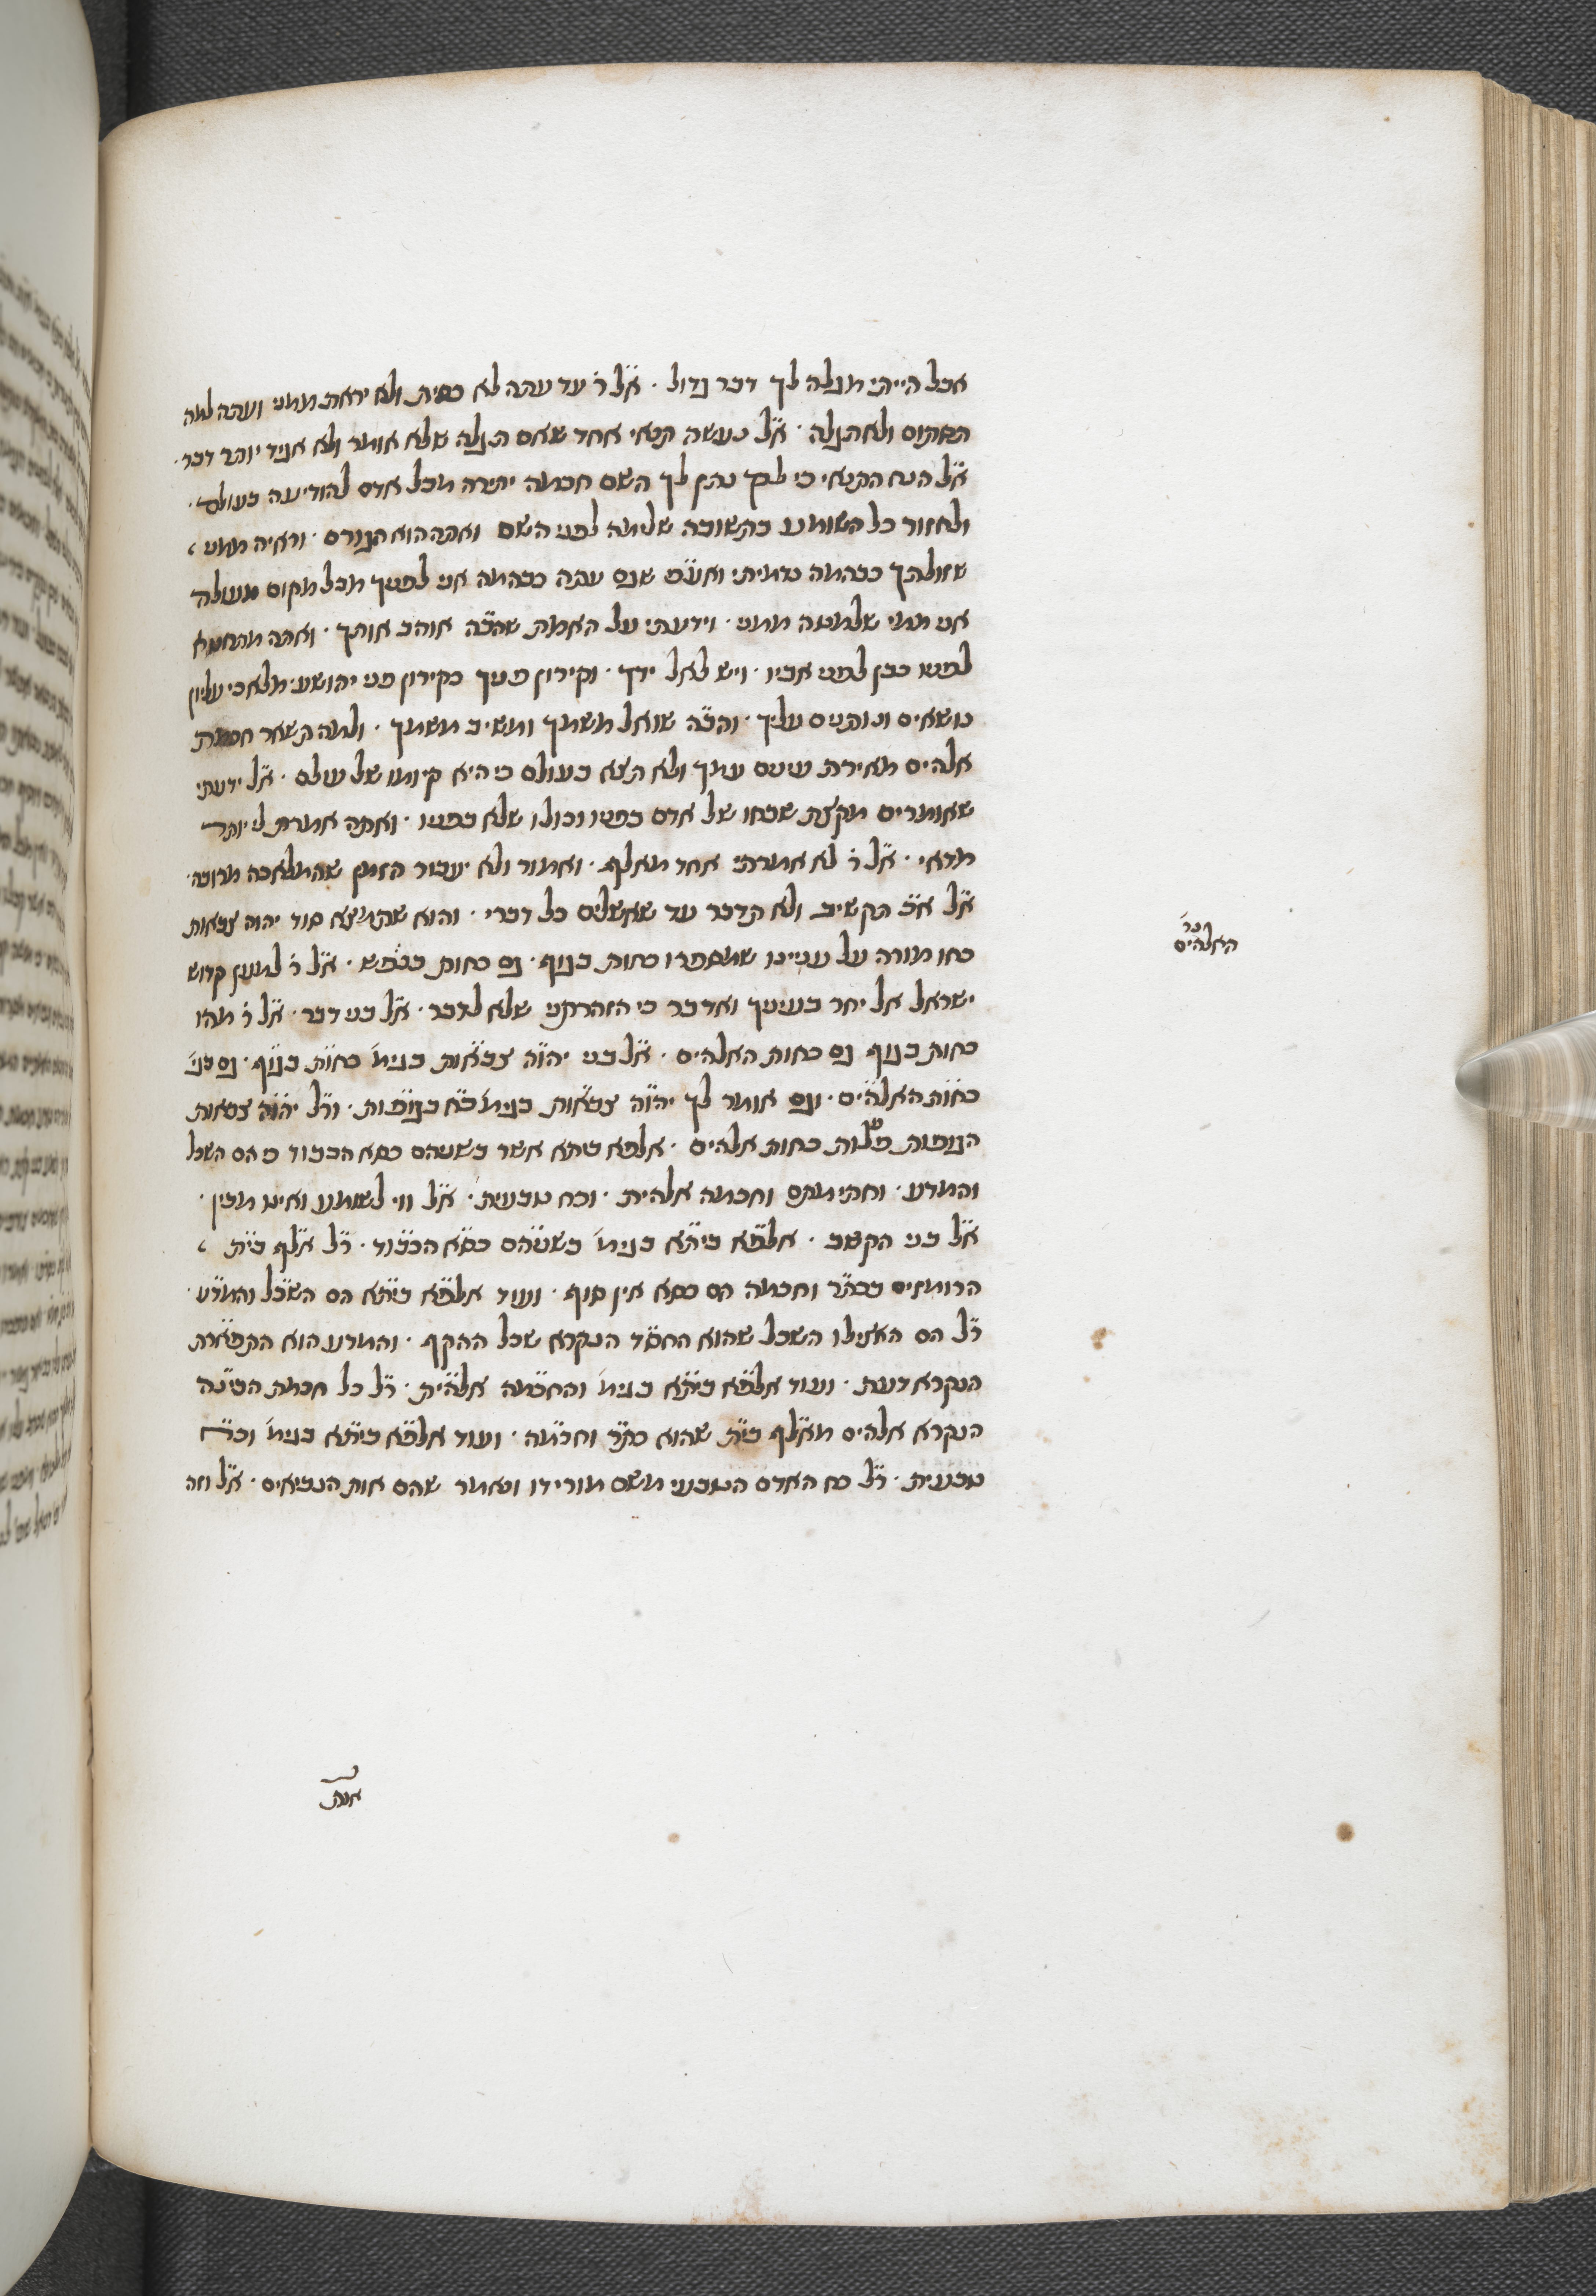 אבל הייתי מגלה לך דבר גדול . א״ל ר׳ עד עתה לא כסית ולא יראת ממני ועתה למה
תסתום ולא תגלה . א״ל נעשה תנאי אחד שאם תגלה שלא אומר ולא אגיד יותר דבר .
א״ל הנה התנאי כי לבך נתן לך השם חכמה יתירה מכל אדם להודיעה בעולם .
ולחזור כל השומע בתשובה שלימה לפני השם ואתה הוא הגורם . וראיה ממני
שזולתך כבהמה נדמיתי ואע״פ שגם עתה כבהמה אני לפניך מכל מקום מעולה
אני ממי שלמטה ממני . וידעתי על האמת שהב״ה אוהב אותך . ואתה מתחטא
לפניו כבן לפני אביו . ויש לאל ידך . וקירון פניך כקירון פני יהושע מלאכי עליון
נושאים ונותנים עליך . והב״ה שואל משמך ומשיב משמך . ולמה תשאר חכמת
אלהים מאירת עינים עמך ולא תצא בעולם כי היא קיומו של עולם . א״ל ידעתי
שאומרים מקצת שבחו של אדם בפניו וכולו שלא בפניו . ואתה אמרת לי יותר
מדאי . א״ל ר׳ לא אמרתי אחד מאלף . ואמור ולא יעבור הזמן שהמלאכה מרובה .
א״ל א״כ תקשיב ולא תדבר עד שאשלים כל דברי . והוא שתמצא סוד יהוה צבאות
כחו מורה על ענייני שמספרו כחות בגוף . גם כחות בנפש . א״ל ר׳ למען קדוש
ישראל אל יחר בעיניך ואדבר כי הזהרתני שלא לדבר . א״ל בני דבר . א״ל ר׳ מהו
כחות בגוף גם כחות האלהים . א״ל בני יהו״ה צבאו״ת בגימ׳ כחו״ת בגו״ף . גם בגי׳
כחו״ת האלהי״ם . וגם אומר לך יהו״ה צבאו״ת בגימ׳ ב״א בגופו״ת . ור״ל יהו״ה צבאות
הגופות פעלות כחות אלהים . אלפא ביתא אשר בשניהם כסא הכבוד כי הם השכל
והמדע . וחתימתם וחכמה אלהית . וכח טבעית . א״ל ווי לשומע ואינו מבין .
א״ל בני הקשב . אלפ״א בית״א בגימ׳ בשניה״ם כס״א הכבו״ד . ר״ל אל״ף בי״ת
הרומזים בכת״ר וחכמה הם כסא אין סוף . ועוד אלפ״א בית״א הם השכ״ל והמד״ע .
ר״ל הם האצילו השכל שהוא החס״ד הנקרא שכל ההקף . והמדע הוא התפאר״ת
הנקרא דעת . ועוד אלפ״א בית״א בגימ׳ והחכמ״ה אלהי״ת . ר״ל כל חכמת הבינ״ה
הנקרא אלהים מאל״ף בי״ת שהוא כת״ר וחכמ״ה . ועוד אלפ״א בית״א בגימ׳ וכ״ח
טבעית . ר״ל כח האדם הטבעי משם מורידו ונאמר שהם אות הנביאים . א״ל וזה
נר׳
האלהים
אמת